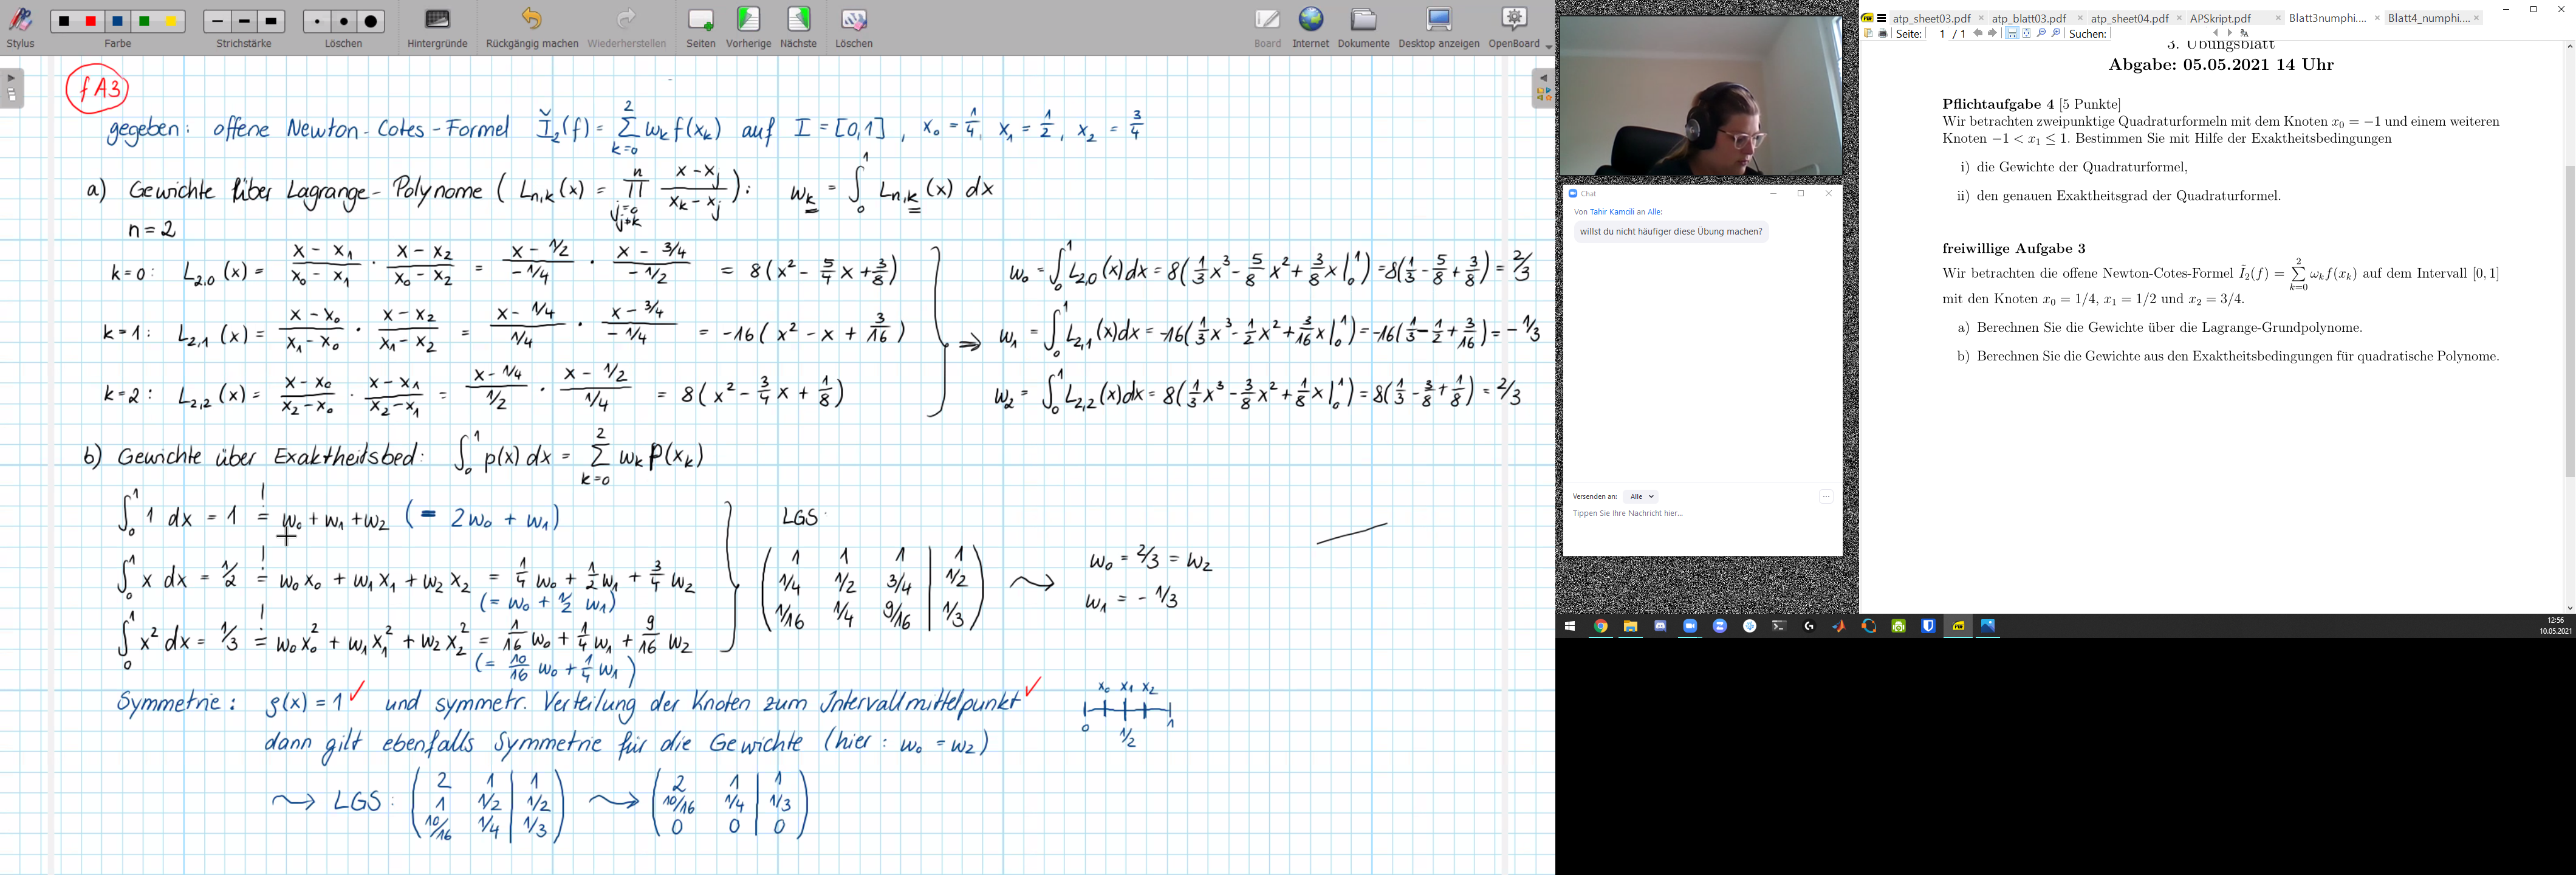 Stylus
Farbe
Strichstärke
Löschen
Hintergründe
Rückgängig machen
Wiederherstellen
Seiten
Vorherige
Nächste
Löschen
Board
Internet
Dokumente
Desktop anzeigen
OpenBoard
fA3
gegeben: offene Newton-Cotes-Formel Ǐ₂(f) = ∑_{k=0}^{2} w_k f(x_k) auf I = [0,1], x₀ = 1/4, x₁ = 1/2, x₂ = 3/4
a) Gewichte über Lagrange-Polynome ( L_{n,k}(x) = ∏_{j=0, j≠k}^{n} (x - x_j)/(x_k - x_j) ): w_k = ∫₀¹ L_{n,k}(x) dx
n = 2
k=0: L_{2,0}(x) = (x - x₁)/(x₀ - x₁) · (x - x₂)/(x₀ - x₂) = (x - 1/2)/(-1/4) · (x - 3/4)/(-1/2) = 8(x² - 5/4 x + 3/8)
w₀ = ∫₀¹ L_{2,0}(x)dx = 8(1/3 x³ - 5/8 x² + 3/8 x |₀¹) = 8(1/3 - 5/8 + 3/8) = 2/3
k=1: L_{2,1}(x) = (x - x₀)/(x₁ - x₀) · (x - x₂)/(x₁ - x₂) = (x - 1/4)/(1/4) · (x - 3/4)/(-1/4) = -16(x² - x + 3/16)
⇒ w₁ = ∫₀¹ L_{2,1}(x)dx = -16(1/3 x³ - 1/2 x² + 3/16 x |₀¹) = -16(1/3 - 1/2 + 3/16) = -1/3
k=2: L_{2,2}(x) = (x - x₀)/(x₂ - x₀) · (x - x₁)/(x₂ - x₁) = (x - 1/4)/(1/2) · (x - 1/2)/(1/4) = 8(x² - 3/4 x + 1/8)
w₂ = ∫₀¹ L_{2,2}(x)dx = 8(1/3 x³ - 3/8 x² + 1/8 x |₀¹) = 8(1/3 - 3/8 + 1/8) = 2/3
b) Gewichte über Exaktheitsbed: ∫₀¹ p(x) dx = ∑_{k=0}^{2} w_k p(x_k)
∫₀¹ 1 dx = 1 =! w₀ + w₁ + w₂ (= 2w₀ + w₁)
∫₀¹ x dx = 1/2 =! w₀x₀ + w₁x₁ + w₂x₂ = 1/4 w₀ + 1/2 w₁ + 3/4 w₂
(= w₀ + 1/2 w₁)
∫₀¹ x² dx = 1/3 =! w₀x₀² + w₁x₁² + w₂x₂² = 1/16 w₀ + 1/4 w₁ + 9/16 w₂
(= 10/16 w₀ + 1/4 w₁)
LGS:
1 1 1 | 1
1/4 1/2 3/4 | 1/2
1/16 1/4 9/16 | 1/3
w₀ = 2/3 = w₂
w₁ = -1/3
Symmetrie: ϱ(x) = 1 ✓ und symmetr. Verteilung der Knoten zum Intervallmittelpunkt ✓
x₀ x₁ x₂
0 1/2 1
dann gilt ebenfalls Symmetrie für die Gewichte (hier: w₀ = w₂)
⇝ LGS:
2 1 | 1
1 1/2 | 1/2
10/16 1/4 | 1/3
⇝
2 1 | 1
10/16 1/4 | 1/3
0 0 | 0
Chat
Von Tahir Kamcili an Alle:
willst du nicht häufiger diese Übung machen?
Versenden an: Alle
Tippen Sie Ihre Nachricht hier...
atp_sheet03.pdf
atp_blatt03.pdf
atp_sheet04.pdf
APSkript.pdf
Blatt3numphi....
Blatt4_numphi....
Seite: 1 / 1 Suchen:
3. Übungsblatt
Abgabe: 05.05.2021 14 Uhr
Pflichtaufgabe 4 [5 Punkte]
Wir betrachten zweipunktige Quadraturformeln mit dem Knoten x₀ = −1 und einem weiteren
Knoten −1 < x₁ ≤ 1. Bestimmen Sie mit Hilfe der Exaktheitsbedingungen
i) die Gewichte der Quadraturformel,
ii) den genauen Exaktheitsgrad der Quadraturformel.
freiwillige Aufgabe 3
Wir betrachten die offene Newton-Cotes-Formel Ĩ₂(f) = ∑_{k=0}^{2} ω_k f(x_k) auf dem Intervall [0,1]
mit den Knoten x₀ = 1/4, x₁ = 1/2 und x₂ = 3/4.
a) Berechnen Sie die Gewichte über die Lagrange-Grundpolynome.
b) Berechnen Sie die Gewichte aus den Exaktheitsbedingungen für quadratische Polynome.
12:56
10.05.2021